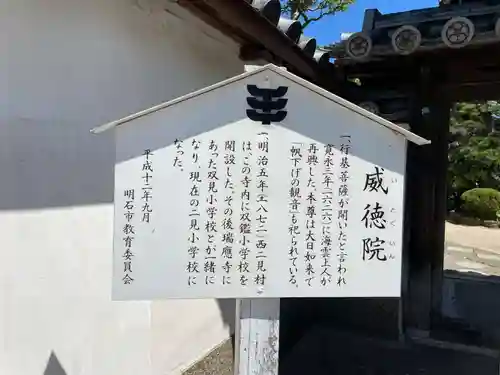 威徳院
いとくいん
一、行基菩薩が開いたと言われ
寛永三年(一六二六)に海雲上人が
再興した。本尊は大日如来で
「帆下げの観音」も祀られている。
一、明治五年(一八七二)西二見村
は、この寺内に双鑑小学校を
開設した。その後瑞應寺に
あった双見小学校と一緒に
なり、現在の二見小学校に
なった。
平成十二年九月
明石市教育委員会